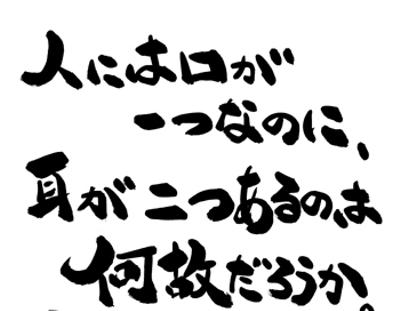 人には口が
一つなのに、
耳が二つあるのは
何故だろうか。